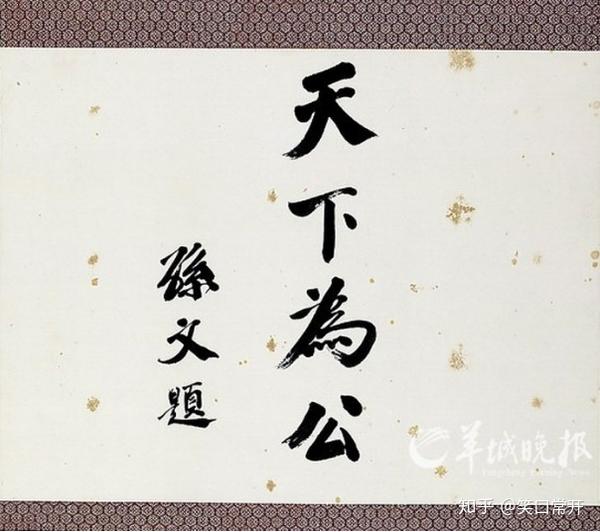 天下為公
孫文題
羊城晚报
Yangcheng Evening News
知乎 @笑口常开